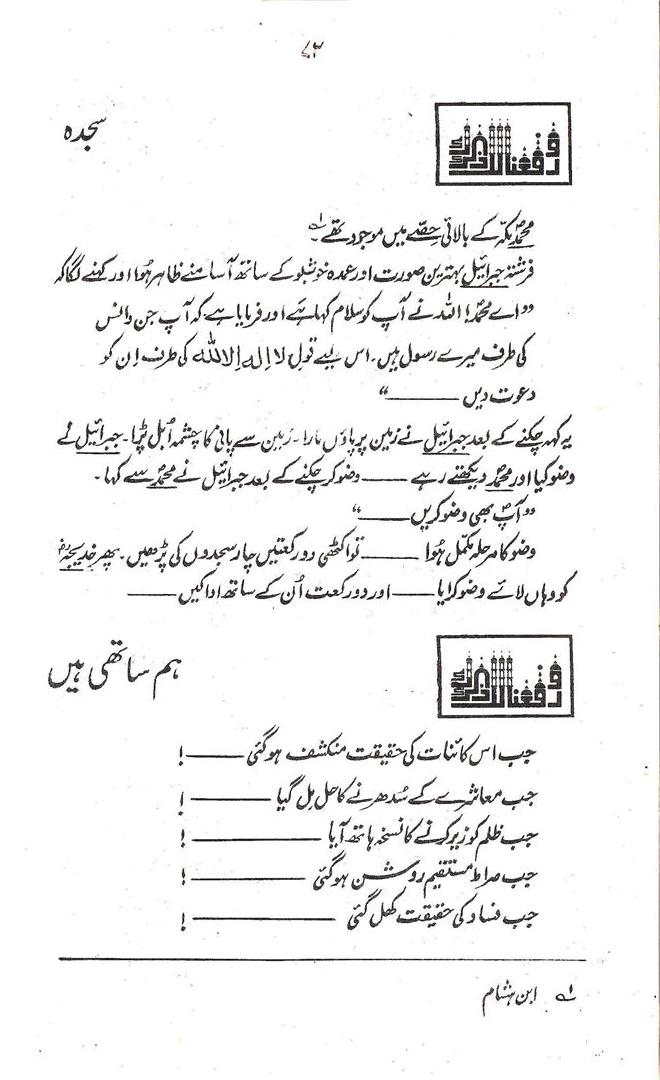 ۷۳
سجدہ
ورفعنا لک ذکرک
محمدؐ مکہ کے بالائی حصے میں موجود تھے۔ ؎۱
فرشتہ جبرائیل بہترین صورت اور عمدہ خوشبو کے ساتھ آ سامنے ظاہر ہُوا اور کہنے لگا کہ
”اے محمدؐ! اللہ نے آپ کو سلام کہا ہے اور فرمایا ہے کہ آپ جن و انس
کی طرف میرے رسول ہیں۔ اس لیے قول لا الہ الا اللہ کی طرف اِن کو
دعوت دیں ———“
یہ کہہ چکنے کے بعد جبرائیل نے زمین پر پاؤں مارا۔ زمین سے پانی کا چشمہ اُبل پڑا۔ جبرائیل نے
وضو کیا اور محمدؐ دیکھتے رہے —— وضو کر چکنے کے بعد جبرائیل نے محمدؐ سے کہا۔
”آپؐ بھی وضو کریں ——“
وضو کا مرحلہ مکمل ہُوا ——— تو اکٹھی دو رکعتیں چار سجدوں کی پڑھیں۔ پھر خدیجہؓ
کو وہاں لائے وضو کرایا —— اور دو رکعت اُن کے ساتھ ادا کیں ———
ہم ساتھی ہیں
ورفعنا لک ذکرک
جب اس کائنات کی حقیقت منکشف ہو گئی ———!
جب معاشرے کے سُدھرنے کا حل مِل گیا ———!
جب ظلم کو زیر کرنے کا نسخہ ہاتھ آیا ———!
جب صراطِ مستقیم روشن ہو گئی ———!
جب فساد کی حقیقت کھل گئی ———!
؎۱ ابن ہشام